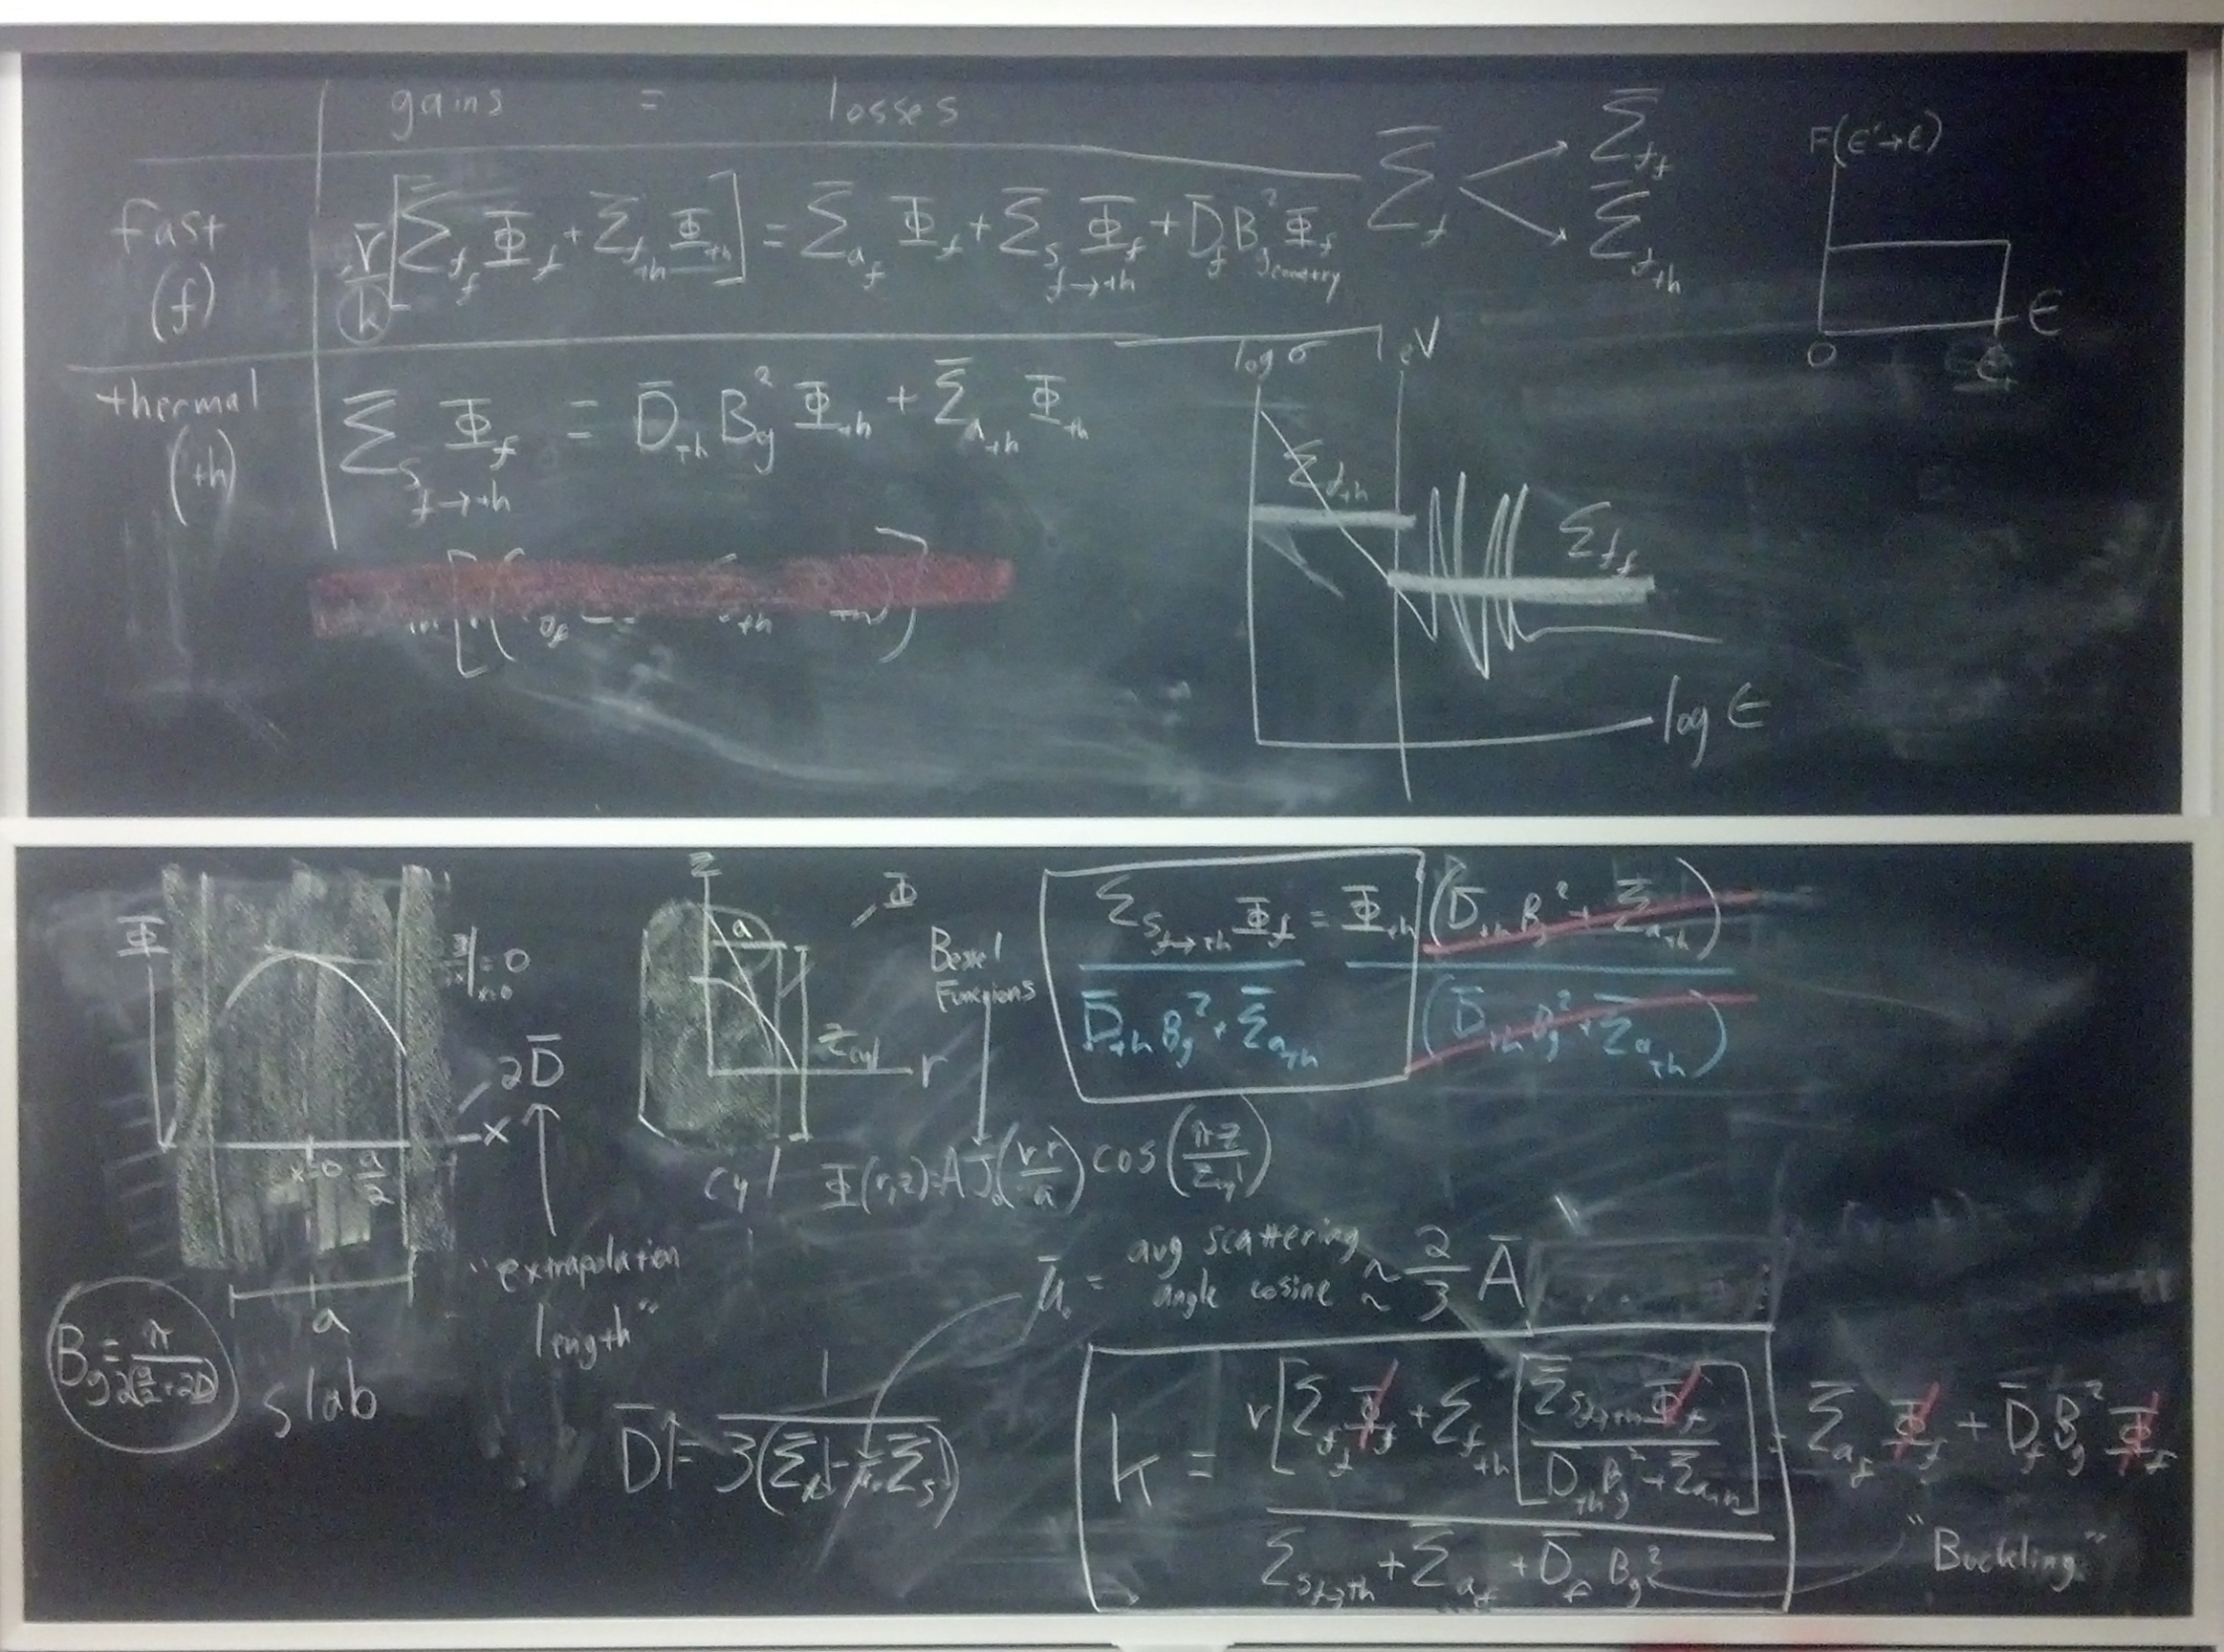 gains = losses
fast
(f)
ν̄/k [Σ̄_f_f Φ_f + Σ̄_f_th Φ_th] = Σ̄_a_f Φ_f + Σ̄_s_f→th Φ_f + D̄_f B_geometry² Φ_f
Σ̄_f
Σ̄_f_f
Σ̄_f_th
F(ϵ'→ϵ)
0
ϵ
thermal
(th)
Σ̄_s_f→th Φ_f = D̄_th B_g² Φ_th + Σ̄_a_th Φ_th
log σ
1 eV
Σ_f_th
Σ_f_f
log ϵ
Φ
=0
x=0
2D̄
x
x=0
a/2
"extrapolation
length"
a
slab
B_g = π/2(a/2+2D)
z
Φ
a
z_cyl
r
Bessel
Functions
cyl Φ(r,z)=AJ_0(νr/a) cos(πz/z_cyl)
Σ_s_f→th Φ_f = Φ_th (D̄_th B_g² + Σ̄_a_th)
D̄_th B_g² + Σ̄_a_th (D̄_th B_g² + Σ̄_a_th)
μ̄_0 = avg scattering angle cosine ≈ 2/3 Ā
D̄ = 1/3(Σ̄_t - μ̄_0 Σ̄_s)
k = ν[Σ̄_f_f Φ_f + Σ_f_th [Σ̄_s_f→th Φ_f / D̄_th B_g² + Σ̄_a_th] = Σ̄_a_f Φ_f + D̄_f B_g² Φ_f
Σ_s_f→th + Σ̄_a_f + D̄_f B_g²
"Buckling"